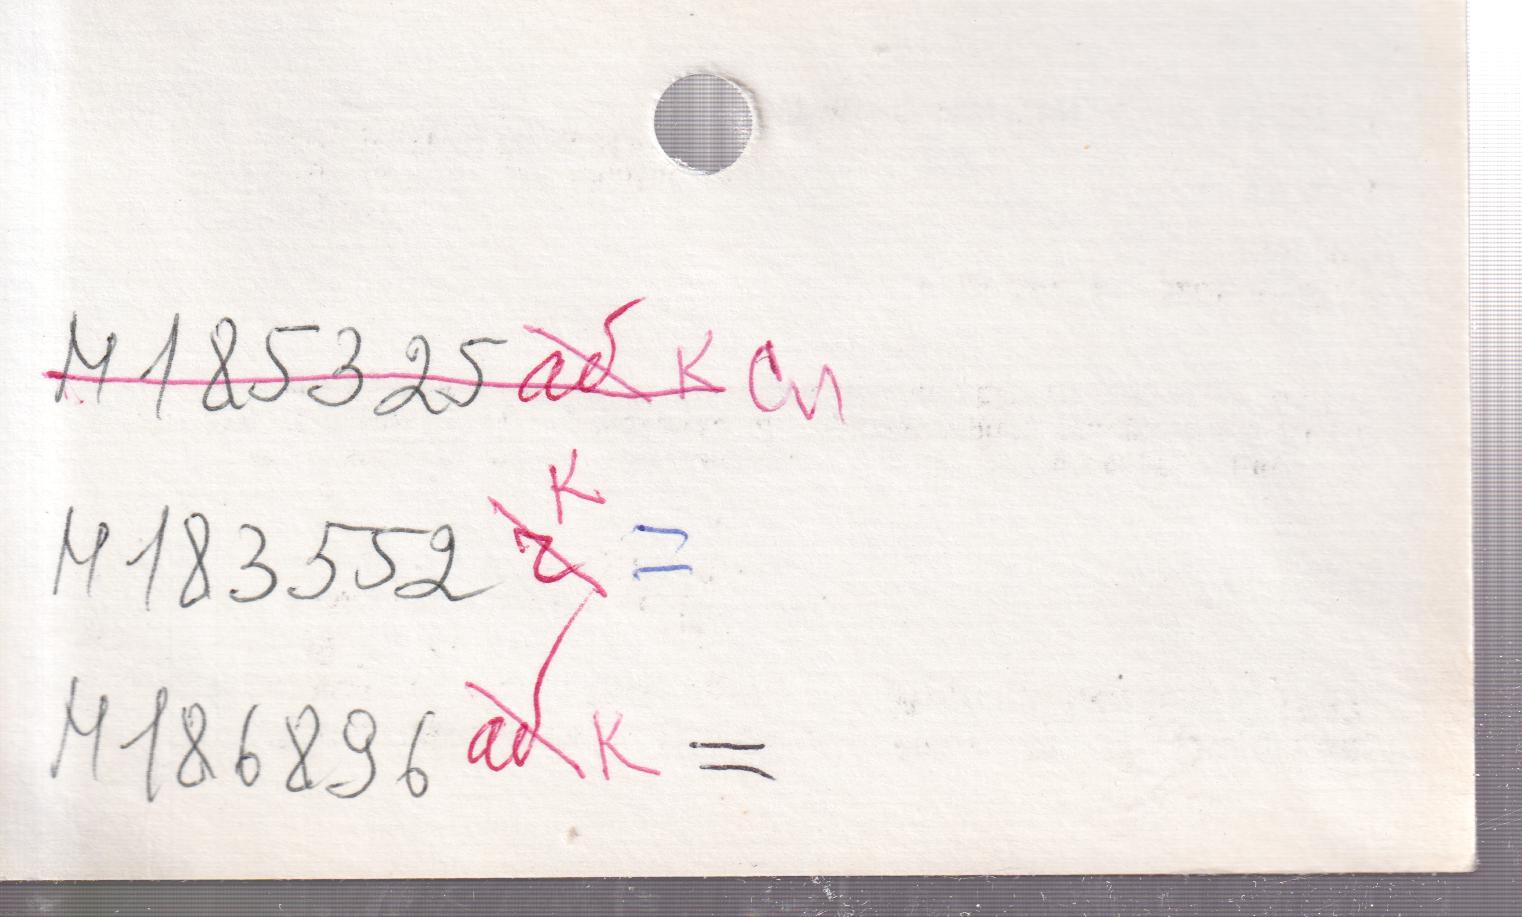 М185325 аб К Сп
М183552 г К =
М186896 аб К =